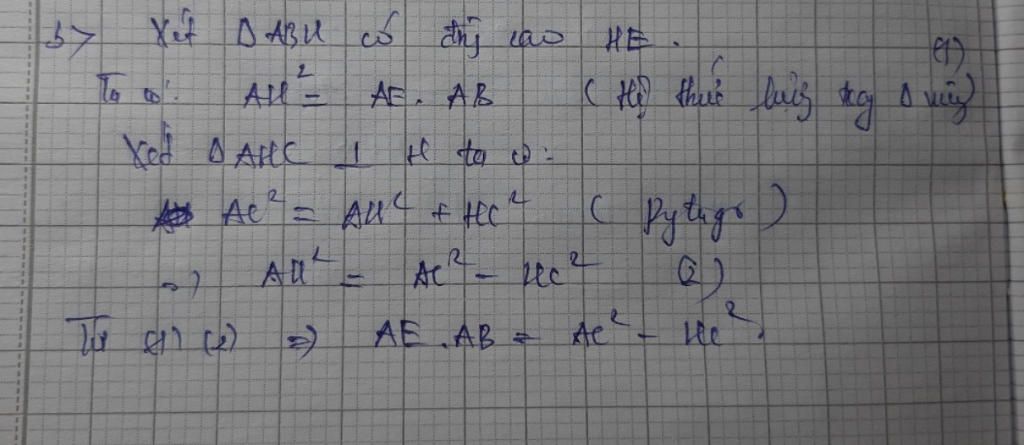 b> Xét ΔABH có đg cao HE.
(1)
Ta có: AH² = AE. AB (Hệ thức lượng trg Δ vuông)
Xét ΔAHC ⊥ H ta có:
AC² = AH² + HC² (Pytago)
=> AH² = AC² - HC² (2)
Từ (1) (2) => AE.AB = AC² - HC².